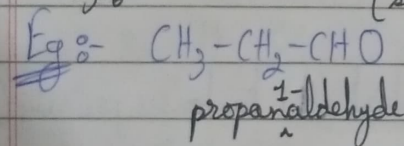 Eg :- CH₃-CH₂-CHO
1-
propanaldehyde